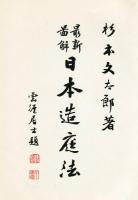 杉本文太郎著
最新
図解
日本造庭法
雲渓居士題